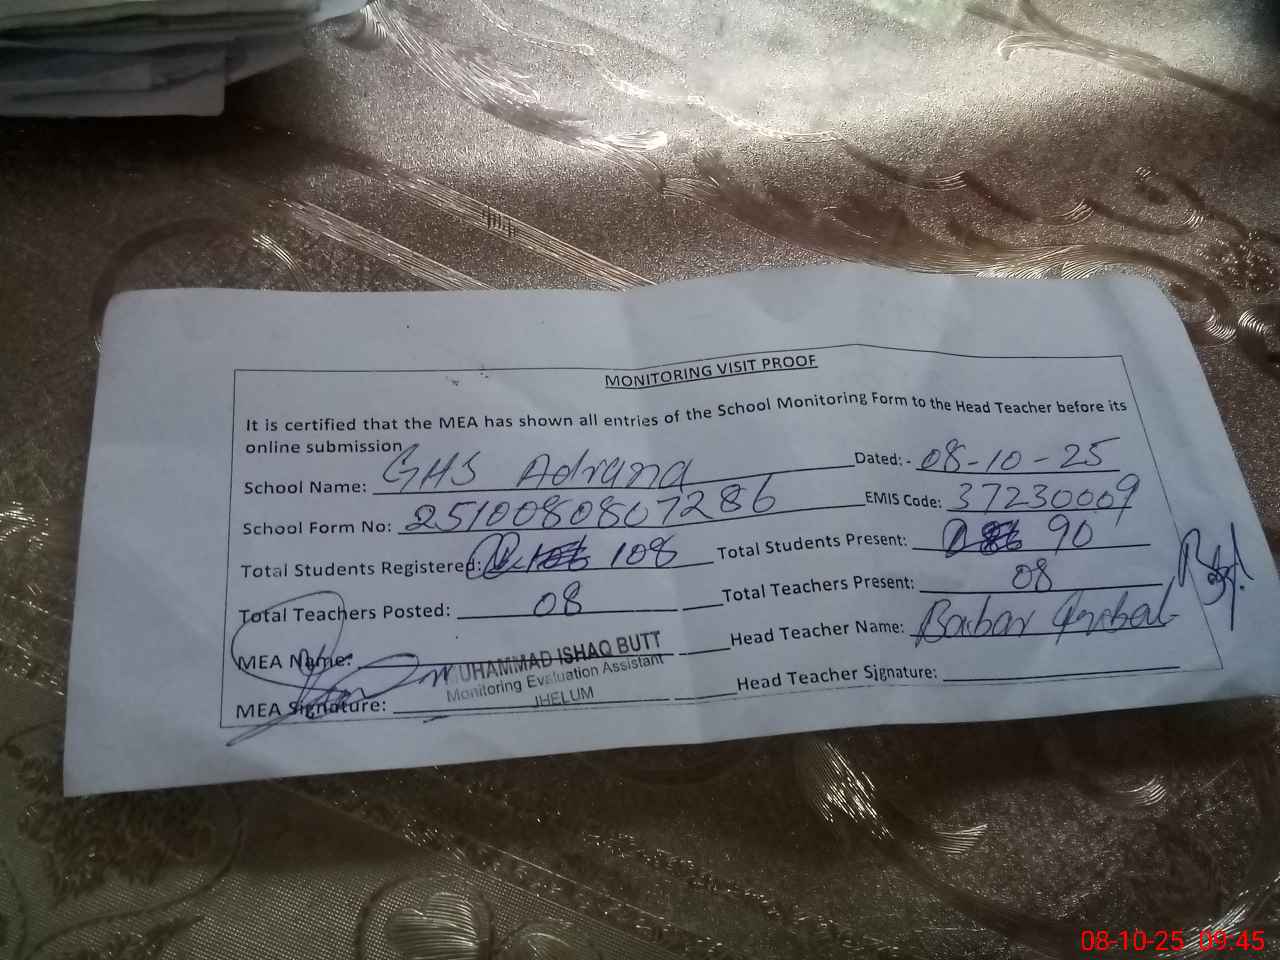 MONITORING VISIT PROOF
It is certified that the MEA has shown all entries of the School Monitoring Form to the Head Teacher before its
online submission
School Name: GHS Adrana Dated: - 08-10-25
School Form No: 2510080807286 EMIS Code: 37230009
Total Students Registered: 108 Total Students Present: 90
Total Teachers Posted: 08 Total Teachers Present: 08
MEA Name: MUHAMMAD ISHAQ BUTT Head Teacher Name: Babar
Monitoring Evaluation Assistant
MEA Signature: JHELUM Head Teacher Signature:
08-10-25 09:45